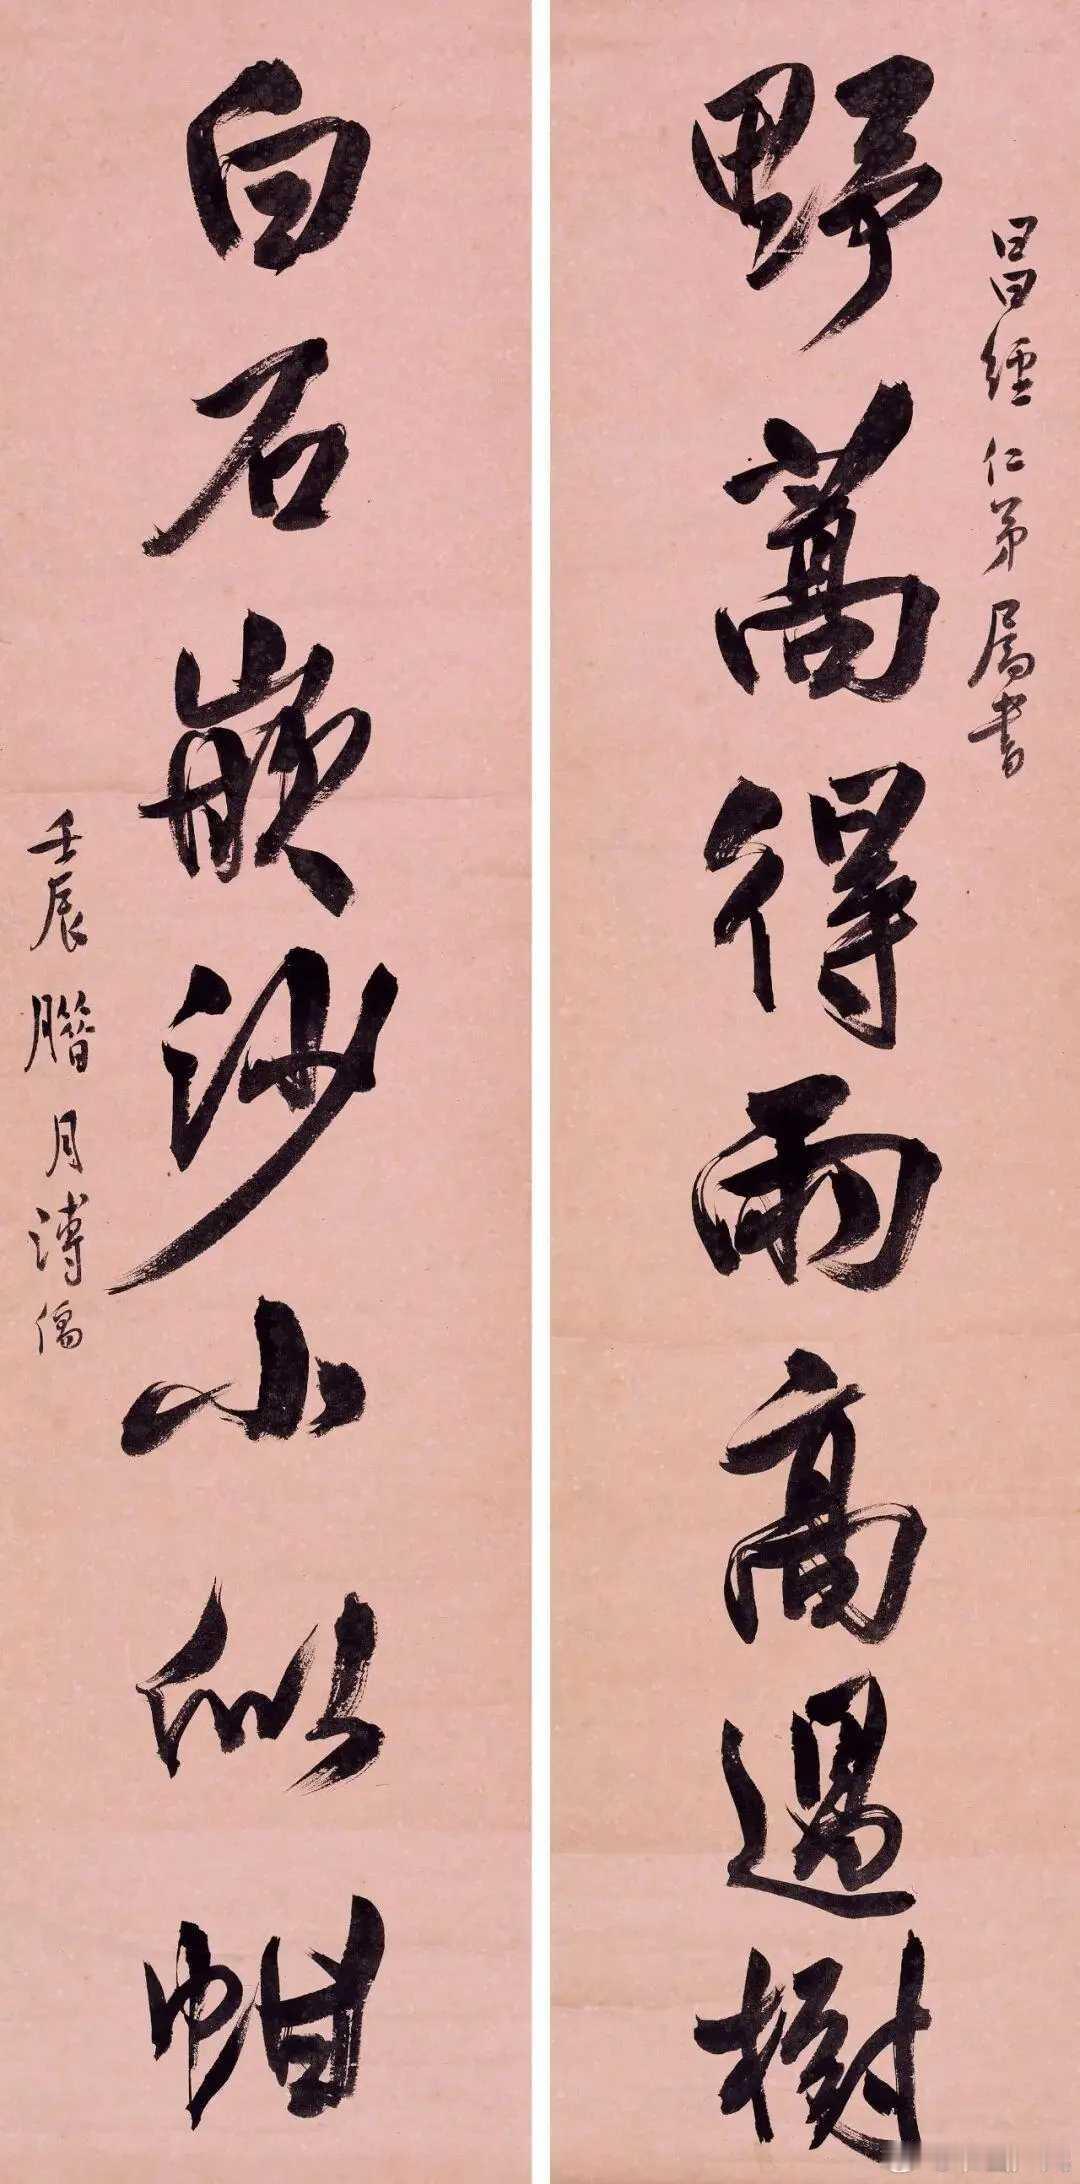 昌經仁弟屬書
野蒿得雨高過樹
白石嵌沙小似帽
壬辰臘月溥儒